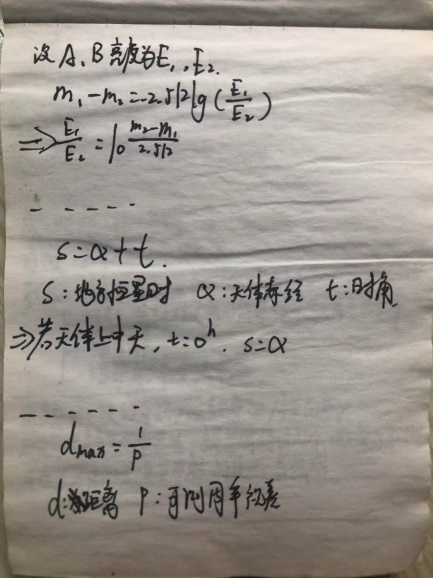 设A、B亮度为E₁,E₂.
m₁-m₂=-2.512lg(E₁/E₂)
⇒E₁/E₂=10^((m₂-m₁)/2.512)
------
s=α+t.
S:地方恒星时 α:天体赤经 t:时角
⇒若天体上中天,t=0ʰ.s=α
------
d_max=1/p
d:距离 P:可测周年视差